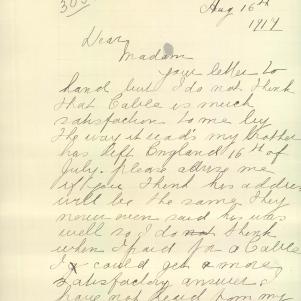 303
Aug 16th
1919
Dear
Madam
your letter to
hand but I do not think
that Cable is much
satisfaction to me by
the way it reads my Brother
has left England 16th of
July. Please advize me
if you think his address
will be the same they
never even said he was
well so I do not think
when I paid for a Cable
I could get a more
satisfactory answer I
have not heard from my